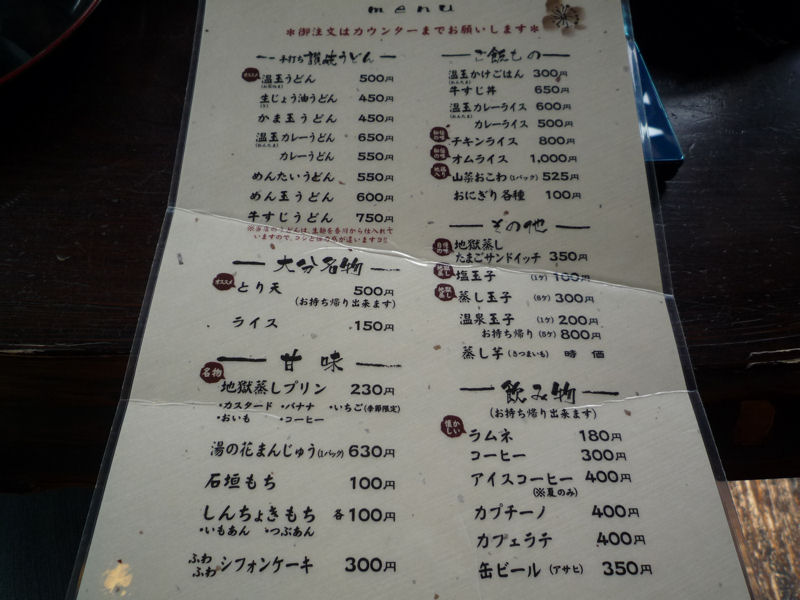 menu
*御注文はカウンターまでお願いします*
手打ち 讃岐うどん
オススメ 温玉うどん 500円
(おんたま)
生じょう油うどん 450円
(き)
かま玉うどん 450円
温玉カレーうどん 650円
(おんたま)
カレーうどん 550円
めんたいうどん 550円
めん玉うどん 600円
牛すじうどん 750円
※当店のうどんは、生麺を香川から仕入れて
いますので、コシとはの感が違いますヨ!!
大分名物
オススメ とり天 500円
(お持ち帰り出来ます)
ライス 150円
甘味
名物 地獄蒸しプリン 230円
・カスタード ・バナナ ・いちご(季節限定)
・おいも ・コーヒー
湯の花まんじゅう(1パック) 630円
石垣もち 100円
しんちょきもち 各100円
・いもあん ・つぶあん
ふわふわ シフォンケーキ 300円
ご飯もの
温玉かけごはん 300円
(おんたま)
牛すじ丼 650円
温玉カレーライス 600円
(おんたま)
カレーライス 500円
チキンライス 800円
オムライス 1,000円
山菜おこわ(1パック) 525円
おにぎり各種 100円
その他
地獄蒸し
たまごサンドイッチ 350円
塩玉子 (1ケ) 100円
蒸し玉子 (6ケ) 300円
温泉玉子 (1ケ) 200円
お持ち帰り (5ケ) 800円
蒸し芋(さつまいも) 時価
飲み物
(お持ち帰り出来ます)
懐かしい ラムネ 180円
コーヒー 300円
アイスコーヒー 400円
(※夏のみ)
カプチーノ 400円
カフェラテ 400円
缶ビール (アサヒ) 350円